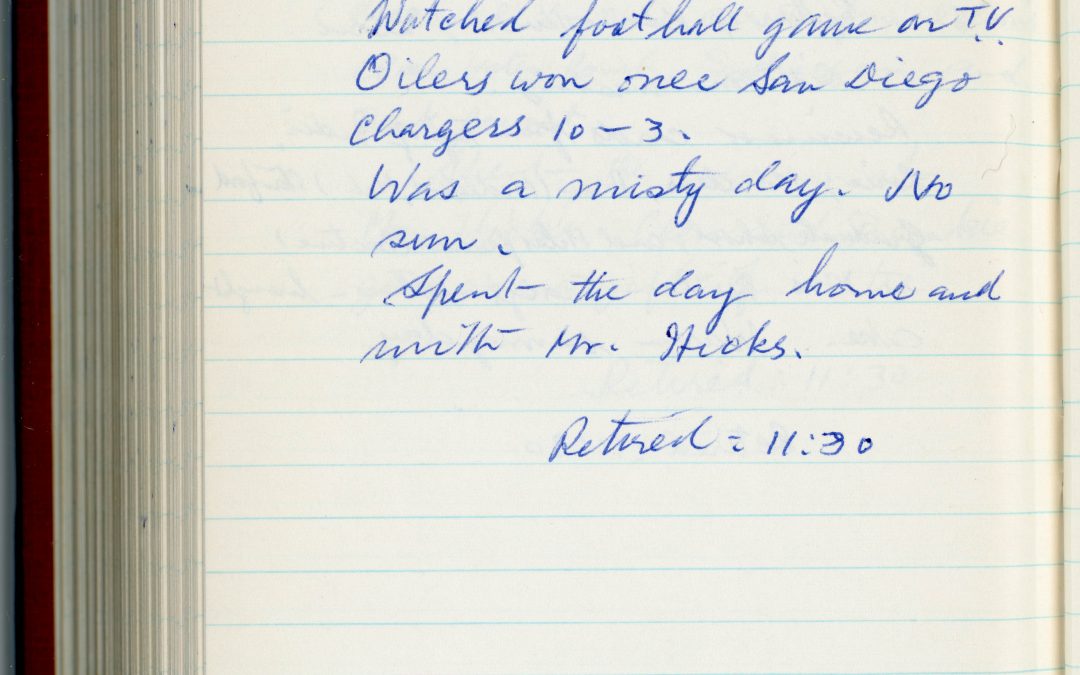 Watched football game on T.V.
Oilers won once San Diego
Chargers 10-3.
Was a misty day. No
sun.
Spent the day home and
with Mr. Hicks.
Retired = 11:30